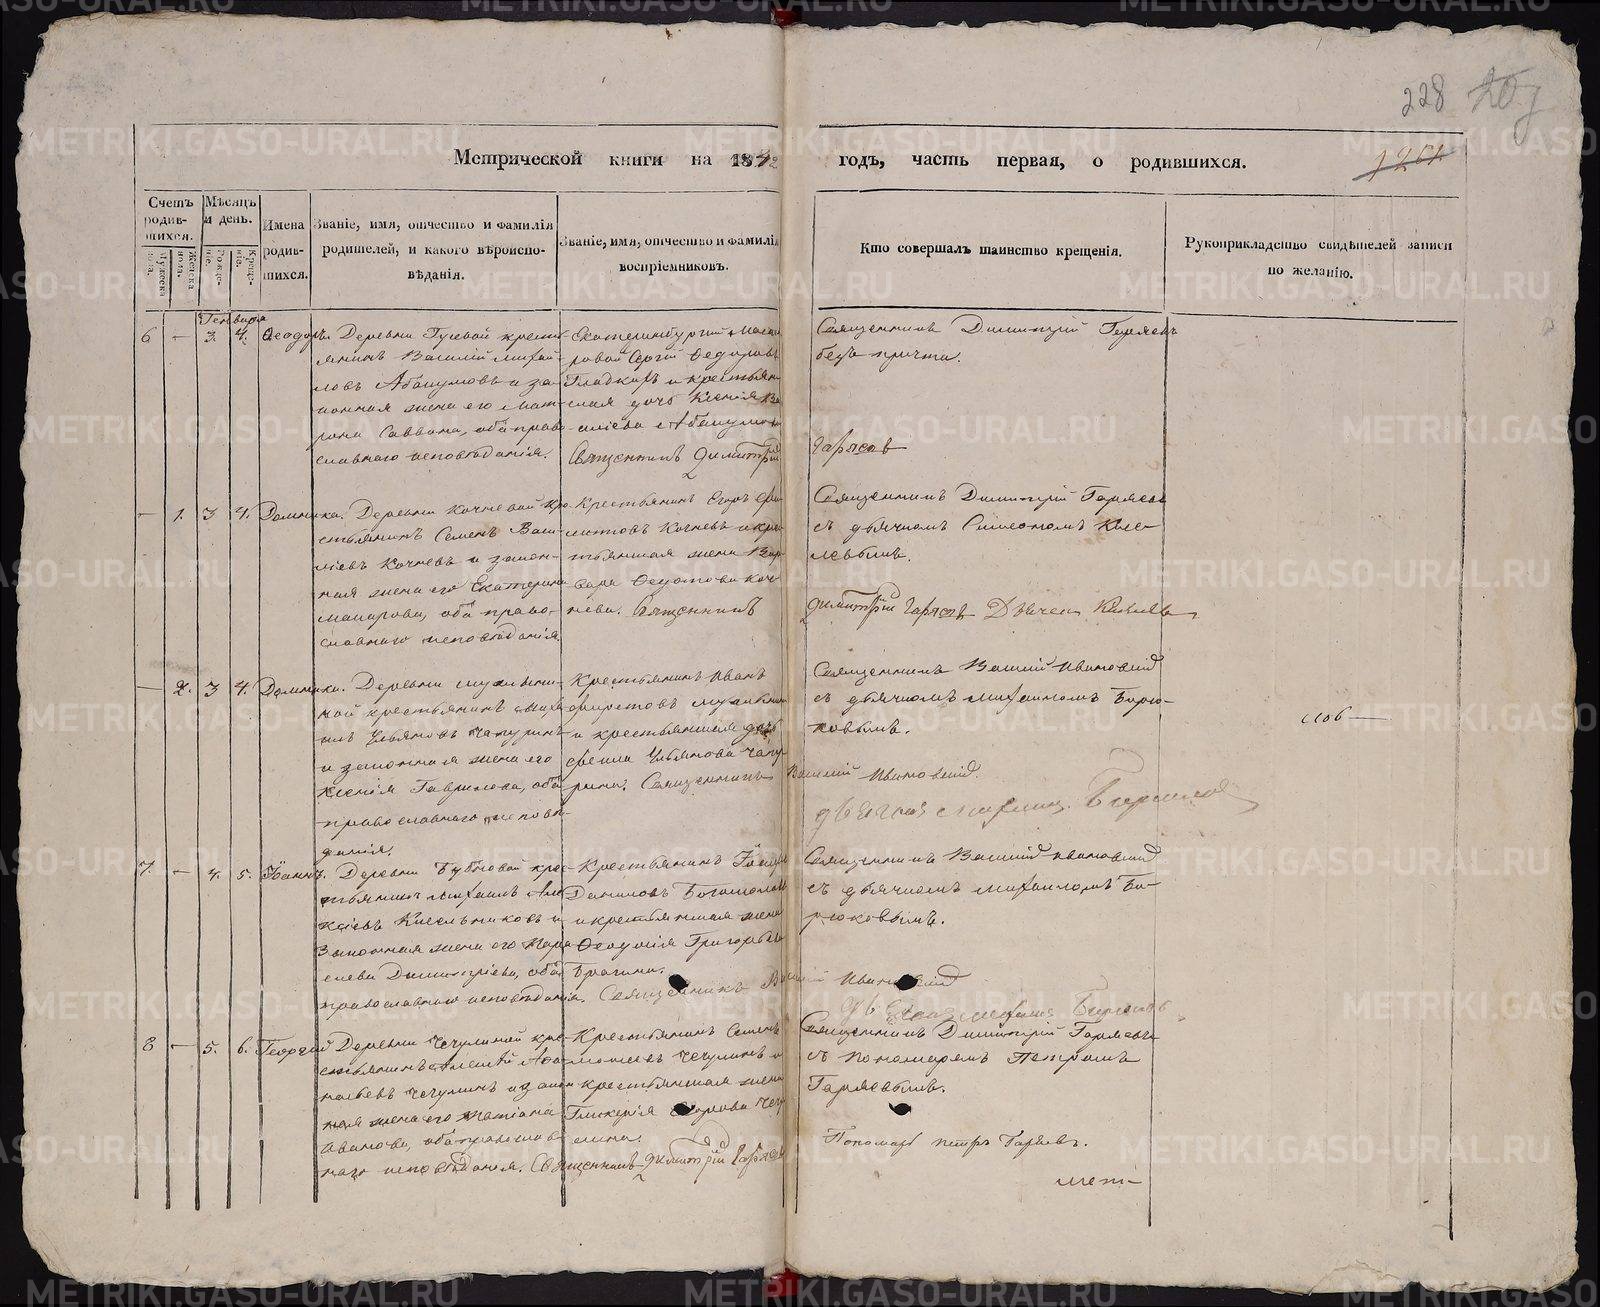 228
Метрической книги на 1842 годъ, часть первая, о родившихся.
1251
Счетъ родив-шихся.
Мужеска пола.
Женска пола.
Мѣсяцъ и день.
Рожде-нія.
Креще-нія.
Имена родив-шихся.
Званіе, имя, отчество и фамилія
родителей, и какого вѣроиспо-
вѣданія.
Званіе, имя, отчество и фамилія
воспріемниковъ.
Кто совершалъ таинство крещенія.
Рукоприкладство свидѣтелей записи
по желанію.
Генваря
6 — 3 4. Ѳеодоръ.
Деревни Гусевой кресть-
янинъ Василій Михай-
ловъ Абакумовъ и за-
конная жена его Мат-
рона Саввина, оба право-
славнаго исповѣданія.
Екатеринбургкій
Сергій Ѳедоровъ
Гладкихъ и крестьян-
ская дочь Ксенія Ва-
силіева Абакумова
Священникъ Димитрій Гаряевъ
Священникъ Димитрій Гаряевъ
безъ причта.
— 1. 3 4. Домника.
Деревни Кочневой кре-
стьянинъ Семенъ Васи-
ліевъ Кочневъ и закон-
ная жена его Екатерина
Макарова, оба право-
славнаго исповѣданія.
Крестьянинъ Егоръ
Кочневъ и крес-
тьянская жена Вар-
вара Ѳедотова Коч-
нева. Священникъ
Священникъ Димитрій Гаряевъ
съ дьячкомъ Симеономъ Кисе-
левымъ.
Димитрій Гаряевъ Дьячекъ Киселевъ
— 2. 3 4. Домника.
Деревни
крестьянинъ
Ульяновъ Чапуринъ
и законная жена его
Ксенія Гаврилова, оба
православнаго исповѣ-
данія.
Крестьянинъ Иванъ
и крестьянская дочь
Ульянова Чапу-
рина. Священникъ Василій Ивановскій.
Священникъ Василій Ивановскій
съ дьячкомъ Михаиломъ Бирю-
ковымъ.
дьячокъ Михаилъ Бирюковъ
7. — 4. 5. Іоаннъ.
Деревни Бубновой крес-
тьянинъ Михаилъ Але-
ксіевъ Кисельниковъ и
законная жена его Пара-
скева Димитріева, оба
православнаго исповѣданія.
Крестьянинъ
Даниловъ Богомоловъ
и крестьянская жена
Ѳеодосія Григорьева
Брагина.
Священникъ Василій Ивановскій
Священникъ Василій Ивановскій
съ дьячкомъ Михаиломъ Би-
рюковымъ.
дьячокъ Михаилъ Бирюковъ
8 — 5. 6. Георгій
Деревни Чечулиной кре-
стьянинъ Алексій Ава-
Чечулинъ и закон-
ная жена его Татіана
Иванова, оба православ-
наго исповѣданія.
Крестьянинъ Семенъ
Чечулинъ и
крестьянская жена
Гликерія Егорова Чечу-
лина.
Священникъ Димитрій Гаряевъ
Священникъ Димитрій Гаряевъ
съ пономаремъ Петромъ
Гаряевымъ.
Пономарь Петръ Гаряевъ.
мет-
METRIKI.GASO-URAL.RU